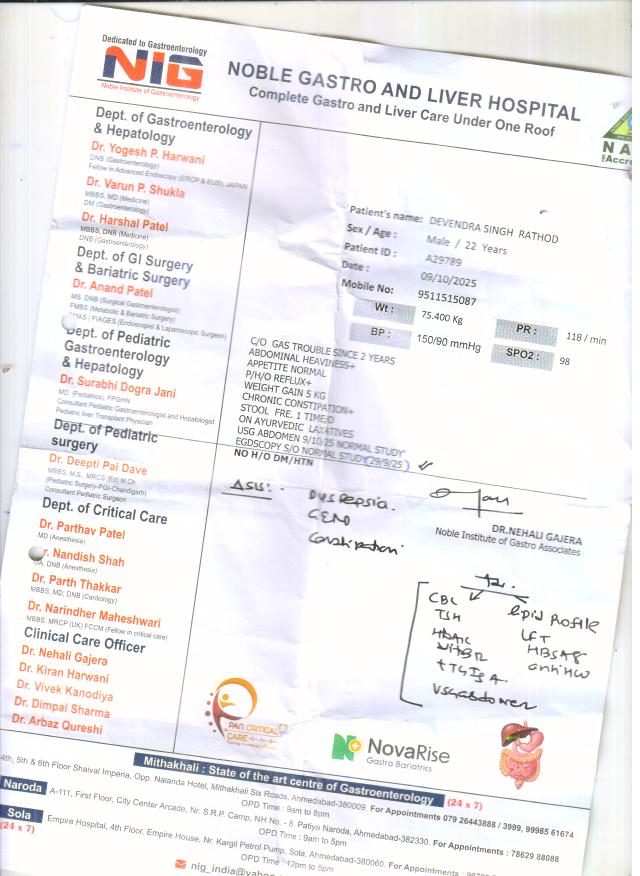 Dedicated to Gastroenterology
NIG
Noble Institute of Gastroenterology
NOBLE GASTRO AND LIVER HOSPITAL
Complete Gastro and Liver Care Under One Roof
Dept. of Gastroenterology
& Hepatology
Dr. Yogesh P. Harwani
DNB (Gastroenterology)
Fellow in Advanced Endoscopy (ERCP & EUS), JAPAN
Dr. Varun P. Shukla
MBBS, MD (Medicine)
DM (Gastroenterology)
Dr. Harshal Patel
MBBS, DNB (Medicine)
DNB (Gastroenterology)
Dept. of GI Surgery
& Bariatric Surgery
Dr. Anand Patel
MS, DNB (Surgical Gastroenterologist)
FMBS (Metabolic & Bariatric Surgery)
FMAS | FIAGES (Endoscopist & Laparoscopic Surgeon)
Dept. of Pediatric
Gastroenterology
& Hepatology
Dr. Surabhi Dogra Jani
MD (Pediatrics), FPGHN
Consultant Pediatric Gastroenterologist and Hepatologist
Pediatric liver Transplant Physician
Dept. of Pediatric
surgery
Dr. Deepti Pai Dave
MBBS, M.S., MRCS (Ed) M.Ch
(Pediatric Surgery-PGI-Chandigarh)
Consultant Pediatric Surgeon
Dept. of Critical Care
Dr. Parthav Patel
MD (Anesthesia)
Nandish Shah
DNB (Anesthesia)
Dr. Parth Thakkar
MBBS, MD, DNB (Cardiology)
Dr. Narindher Maheshwari
MBBS, MRCP (UK) FCCM (Fellow in critical care)
Clinical Care Officer
Dr. Nehali Gajera
Dr. Kiran Harwani
Dr. Vivek Kanodiya
Dr. Dimpal Sharma
Dr. Arbaz Qureshi
Patient's name: DEVENDRA SINGH RATHOD
Sex / Age : Male / 22 Years
Patient ID : A29789
Date : 09/10/2025
Mobile No: 9511515087
Wt : 75.400 Kg PR : 118 / min
BP : 150/90 mmHg SPO2 : 98
C/O GAS TROUBLE SINCE 2 YEARS
ABDOMINAL HEAVINESS+
APPETITE NORMAL
P/H/O REFLUX+
WEIGHT GAIN 5 KG
CHRONIC CONSTIPATION+
STOOL FRE. 1 TIME/D
ON AYURVEDIC LAXATIVES
USG ABDOMEN 9/10/25 NORMAL STUDY
EGDSCOPY S/O NORMAL STUDY(29/9/25)
NO H/O DM/HTN
Dyspepsia.
GERD
Constipation
DR.NEHALI GAJERA
Noble Institute of Gastro Associates
CBC lipid Profile
TSH LFT
HbA1c HBSAg
Vit B12 anti HCV
tTGIgA.
USG abdomen
PAN CRITICAL
CARE
NovaRise
Gastro Bariatrics
Mithakhali : State of the art centre of Gastroenterology (24 x 7)
4th, 5th & 6th Floor Shaival Imperia, Opp. Nalanda Hotel, Mithakhali Six Roads, Ahmedabad-380009. For Appointments 079 26443888 / 3999, 99985 61674
OPD Time : 9am to 8pm
Naroda A-111, First Floor, City Center Arcade, Nr. S.R.P. Camp, NH No. - 8. Patiya Naroda, Ahmedabad-382330. For Appointments : 78629 88088
OPD Time : 9am to 5pm
Sola Empire Hospital, 4th Floor, Empire House, Nr. Kargil Petrol Pump, Sola, Ahmedabad-380060. For Appointments
(24 x 7) OPD Time : 12pm to 5pm